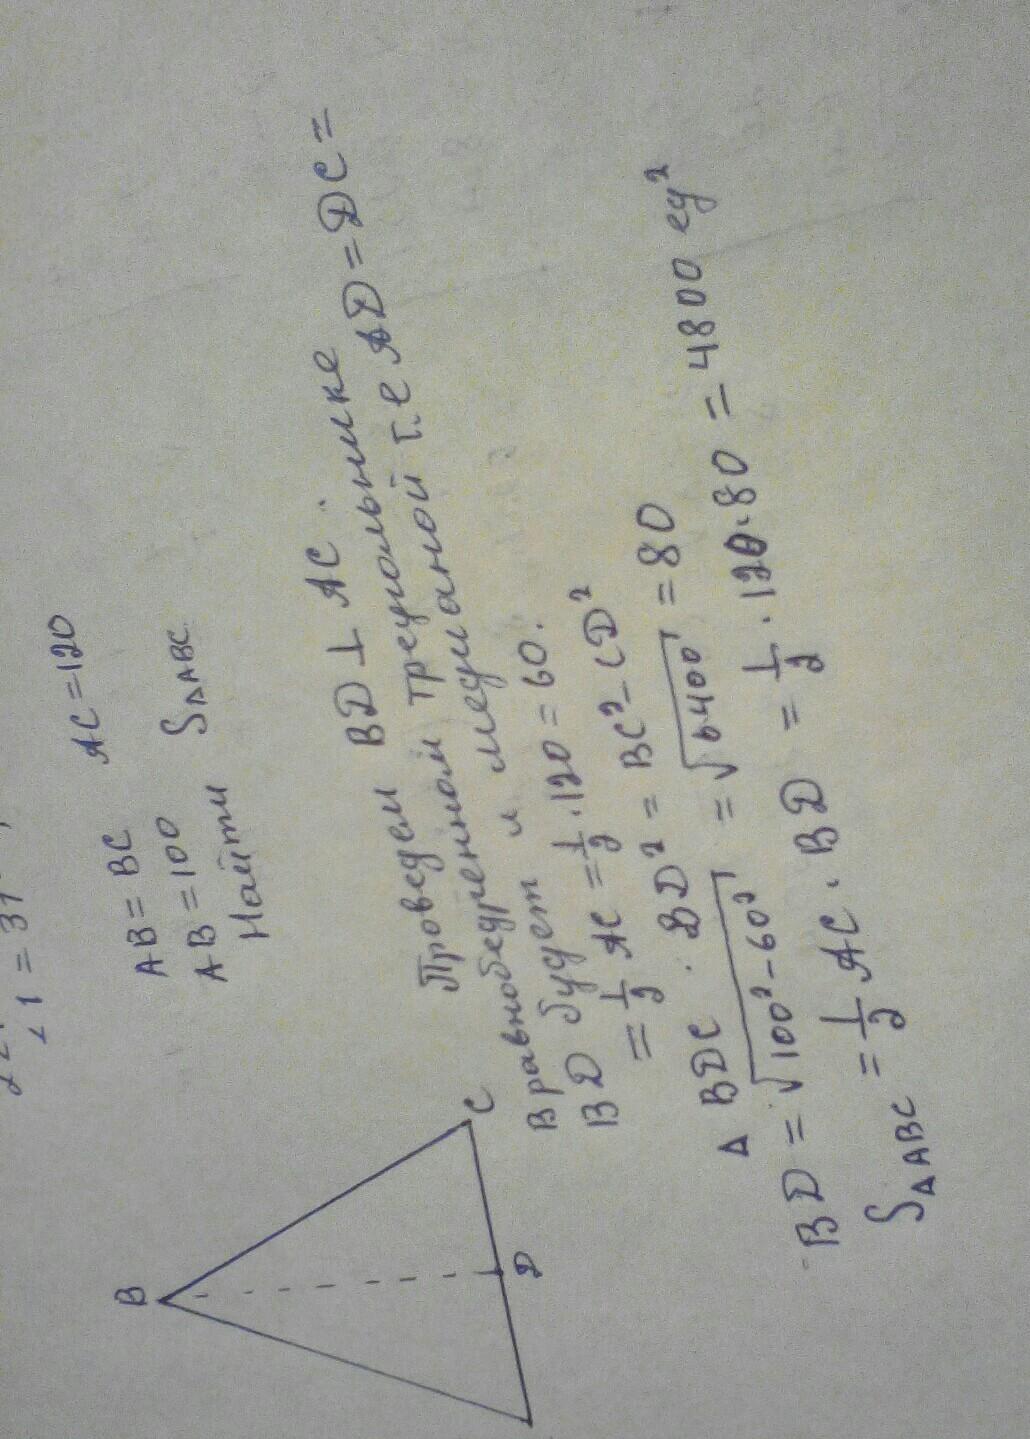 ∠1 = 31
AB = BC AC = 120
AB = 100
Найти S△ABC
B
C
D
Проведем BD ⊥ AC
В равнобедренном треугольнике
BD будет и медианой т.е AD = DC =
= 1/2 AC = 1/2 · 120 = 60.
△ BDC : BD² = BC² - CD²
BD = √100² - 60² = √6400 = 80
S△ABC = 1/2 AC · BD = 1/2 · 120 · 80 = 4800 ед²